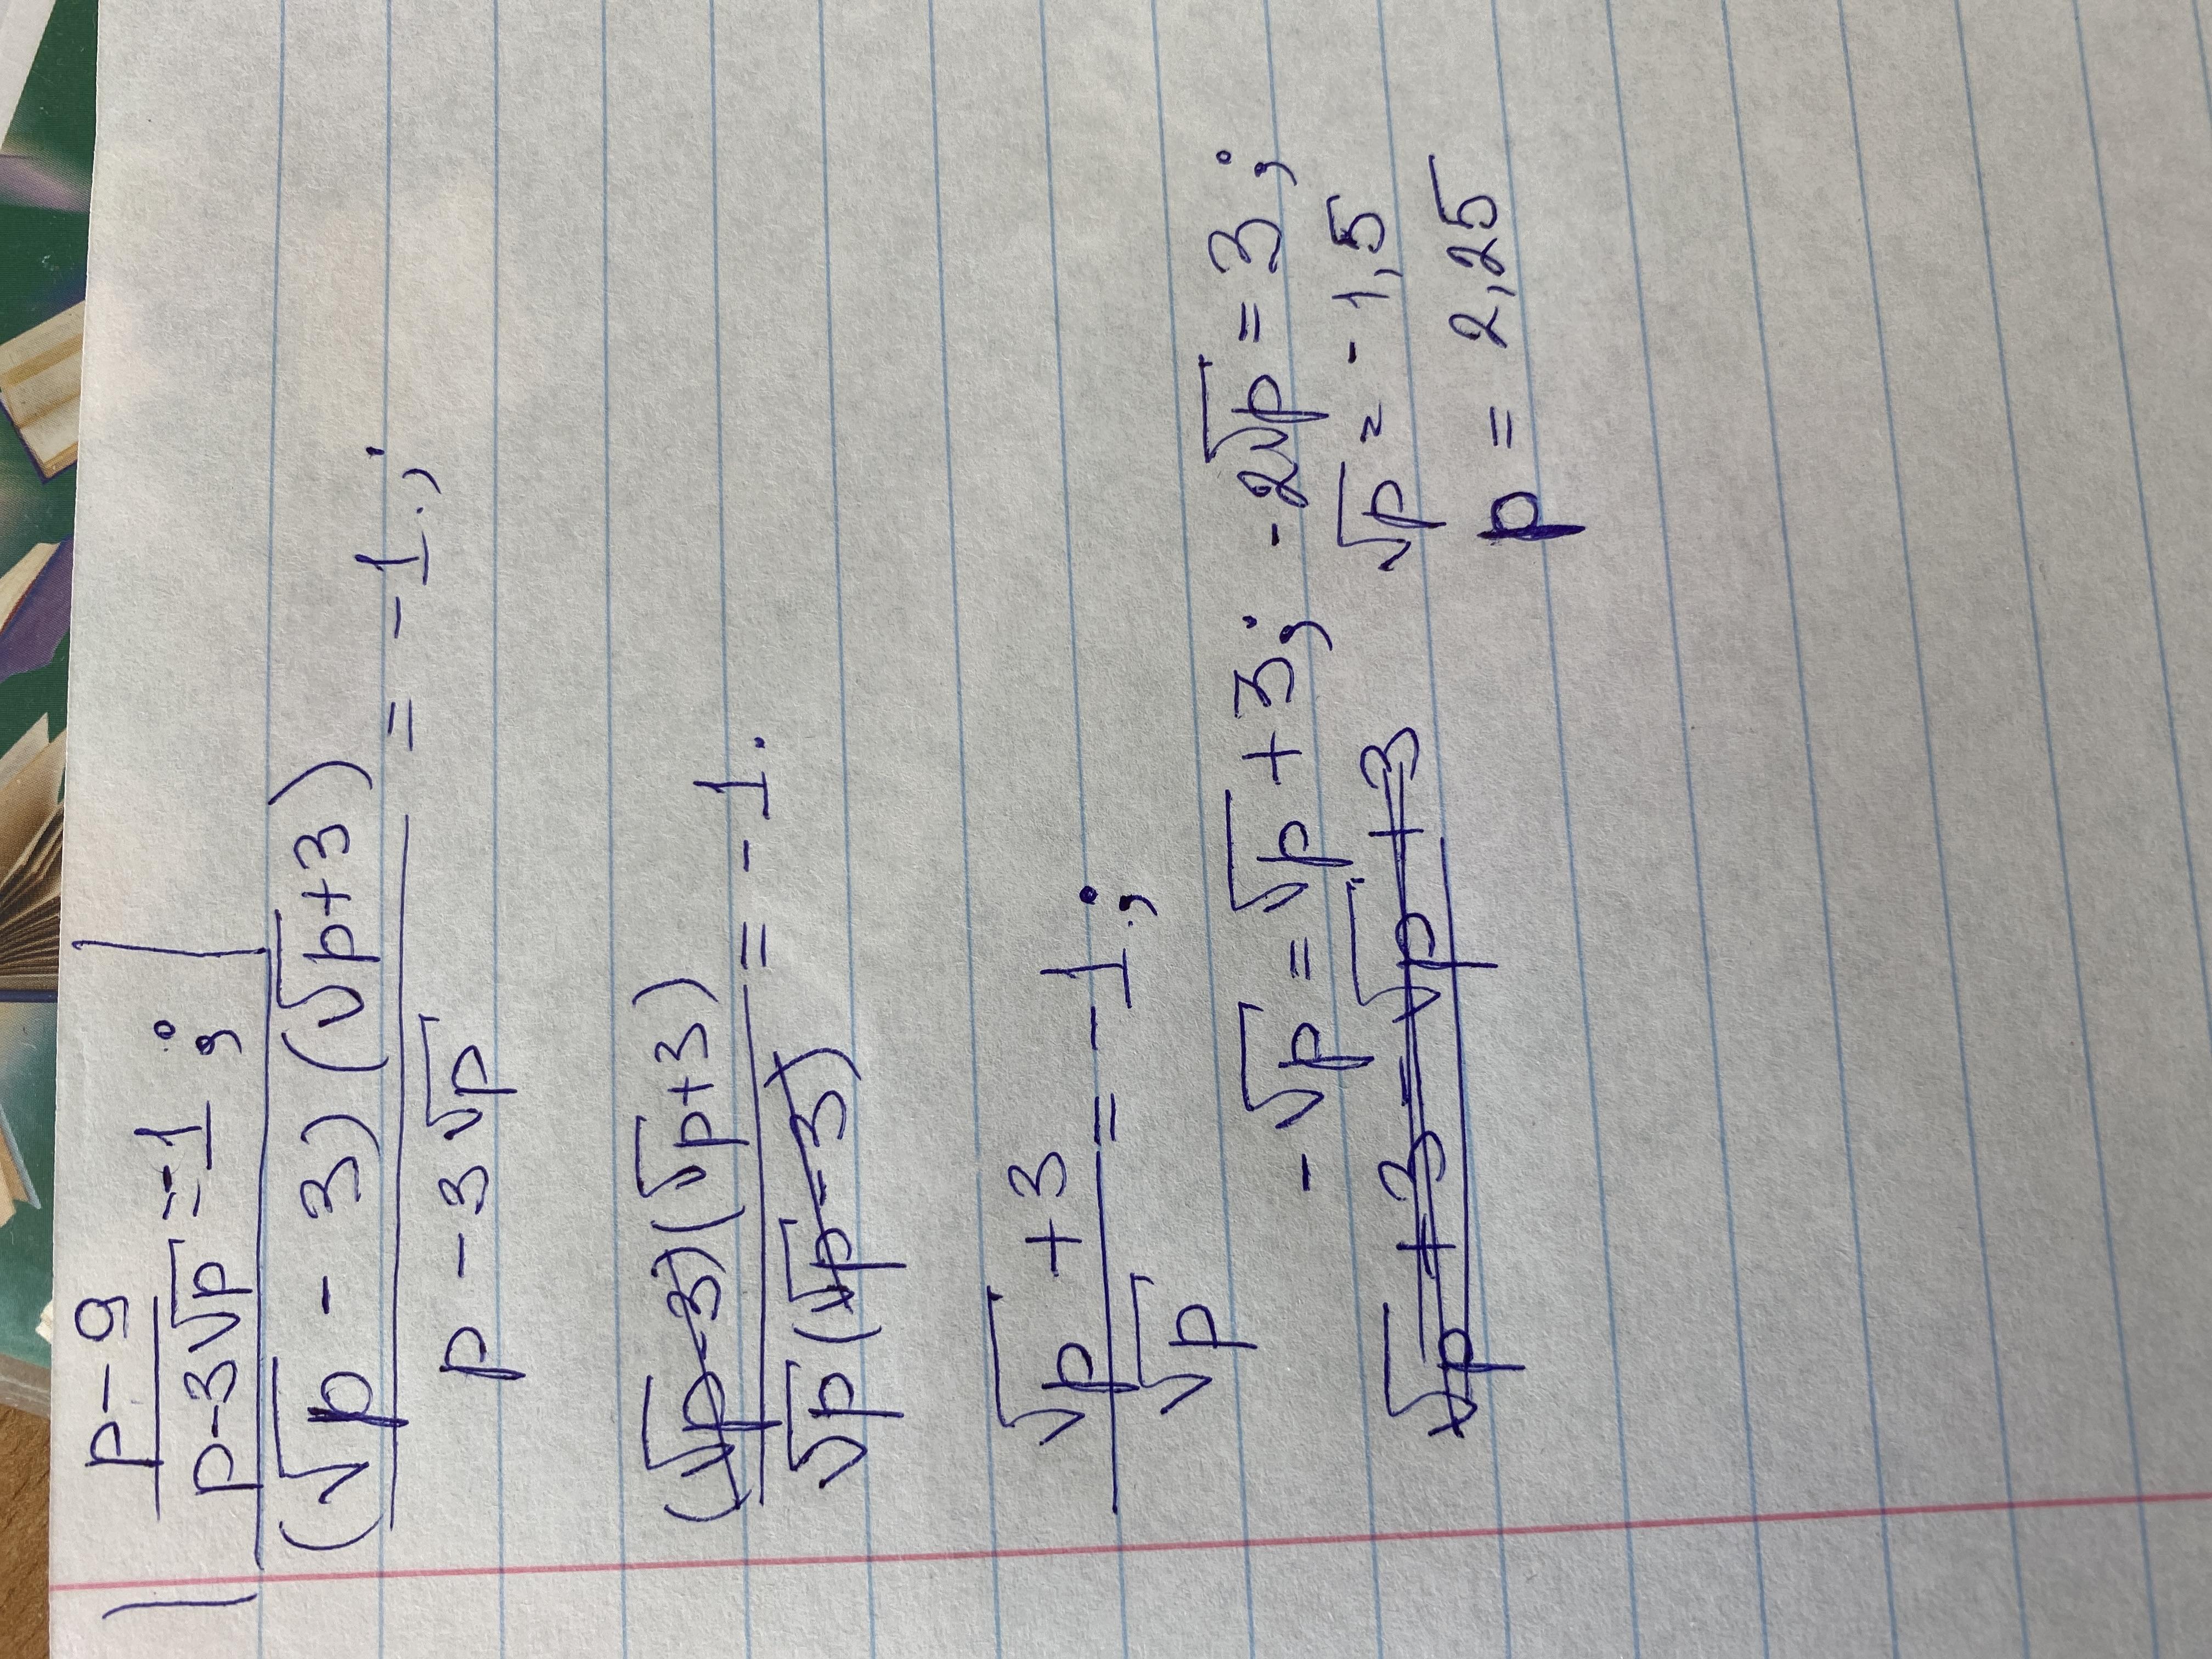 p-9
p-3√p = -1;
(√p - 3)(√p+3)
p - 3√p = -1.;
(√p-3)(√p+3)
√p(√p-3) = -1.
√p +3
√p = -1.;
-√p = √p +3; -2√p = 3;
√p = -1,5
√p +3 = √p +3
p = 2,25